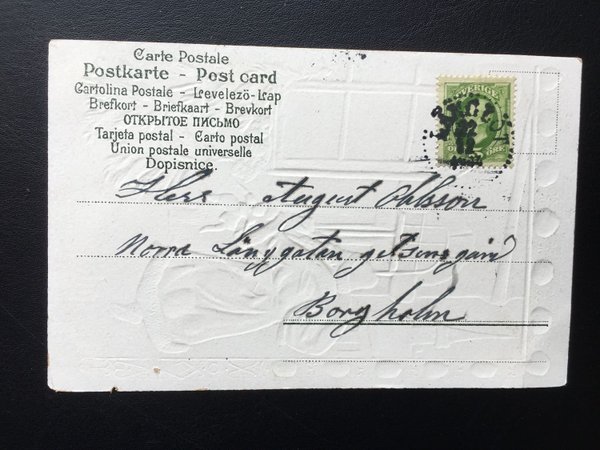 Carte Postale
Postkarte - Post card
Cartolina Postale - Levelező-Lap
Brefkort - Briefkaart - Brevkort
ОТКРЫТОЕ ПИСЬМО
Tarjeta postal - Carto postal
Union postale universelle
Dopisnice
SVERIGE
ÖRE
Herr August Ohlsson
Norra Långgatan
Borgholm